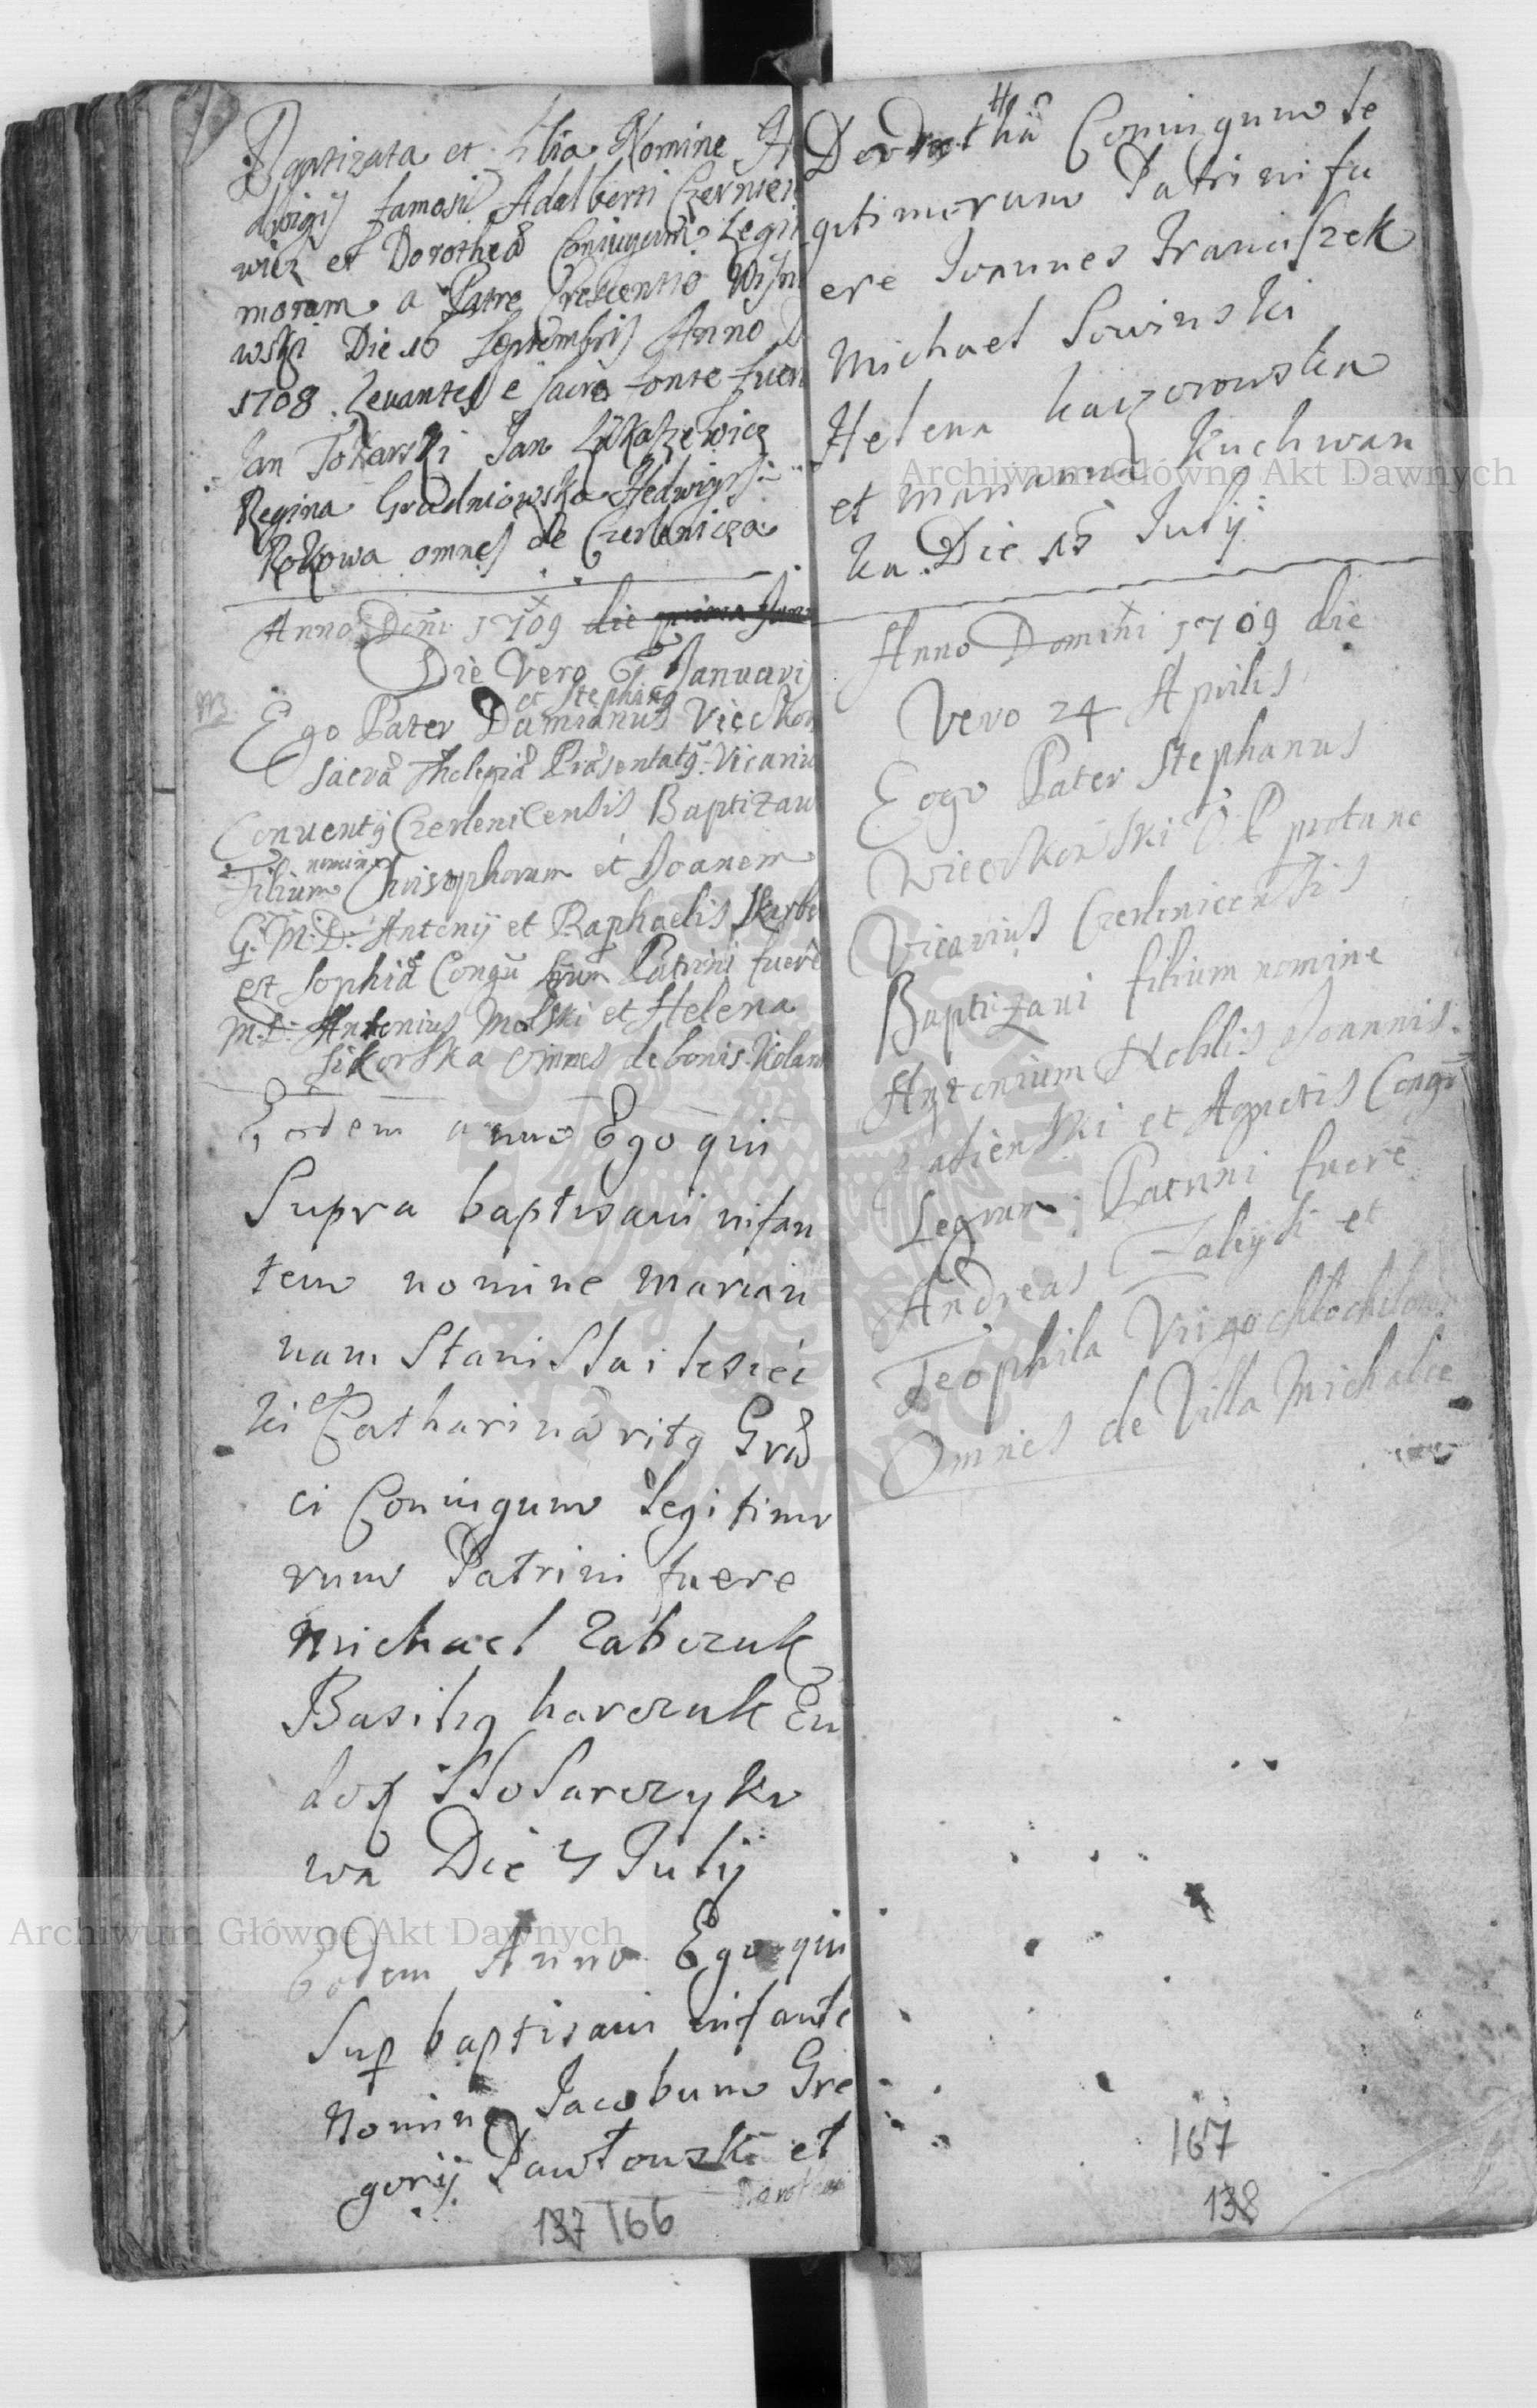 Baptizata et filia Nomine H
dwigis famosi Adalberti Czerniei
wicz et Dorotheae Coniugum Legi
morum a Patre Crescentio Wisni
wski Die 16 Septembris Anno D
1708. Levantes e sacro fonte fuer
Jan Tokarski Jan Łukaszewicz
Regina Gradniowska Hedwigis
Rokowa omnes de Czerlenicza
Anno Dni 1709 die prima Jan
Die Vero 6 Januarij
et Stephang
NB.
Ego Pater Damianus Vieckon
sacrae Thelogiae Praesentatg Vicariu
Conventg Czerlenicensis Baptizavi
nomine
Filium Chrisophorum et Joanem
G. M. D. Antonij et Raphaelis Skarbe
et Sophiae Congu Patrini fuere
M. D. Antonius Molski et Helena
Sikorska Omnes de bonis
Eodem anno Ego qui
Supra baptisaui infan
tem nomine Marian
nam Stanislai lesiec
ki et Catharinae ritg Grae
ci Coniugum legitimo
rum Patrini fuere
Michael Zabczuk
Basilig harczuk Eu
dox Stolarczyko
wa Die 4 Julij
Eodem Anno Ego qui
Sup baptisaui infante
Nomine Jacobum Gre
gorij Pawłouski et
Dorothea
137 166
Dorothae Coniugum le
gitimorum Patrini fu
ere Joannes Franciszek
Michael Sowinski
Helena kaczorowska
et Marianna Kuchwan
ka. Die 15 Julij
Anno Domini 1709 die
Vero 24 Aprilis
Eogo Pater Stephanus
Wieckonski O. P protunc
Vicarius Czerlenicensis
Baptizaui filium nomine
Antonium Noblis Joannis
et Agnetis Congu
Legum Patrini fuere
Andreas Zaleyski et
Teophila Virgo
Omnes de Villa Michalce
167
138
Archiwum Główne Akt Dawnych
Archiwum Główne Akt Dawnych